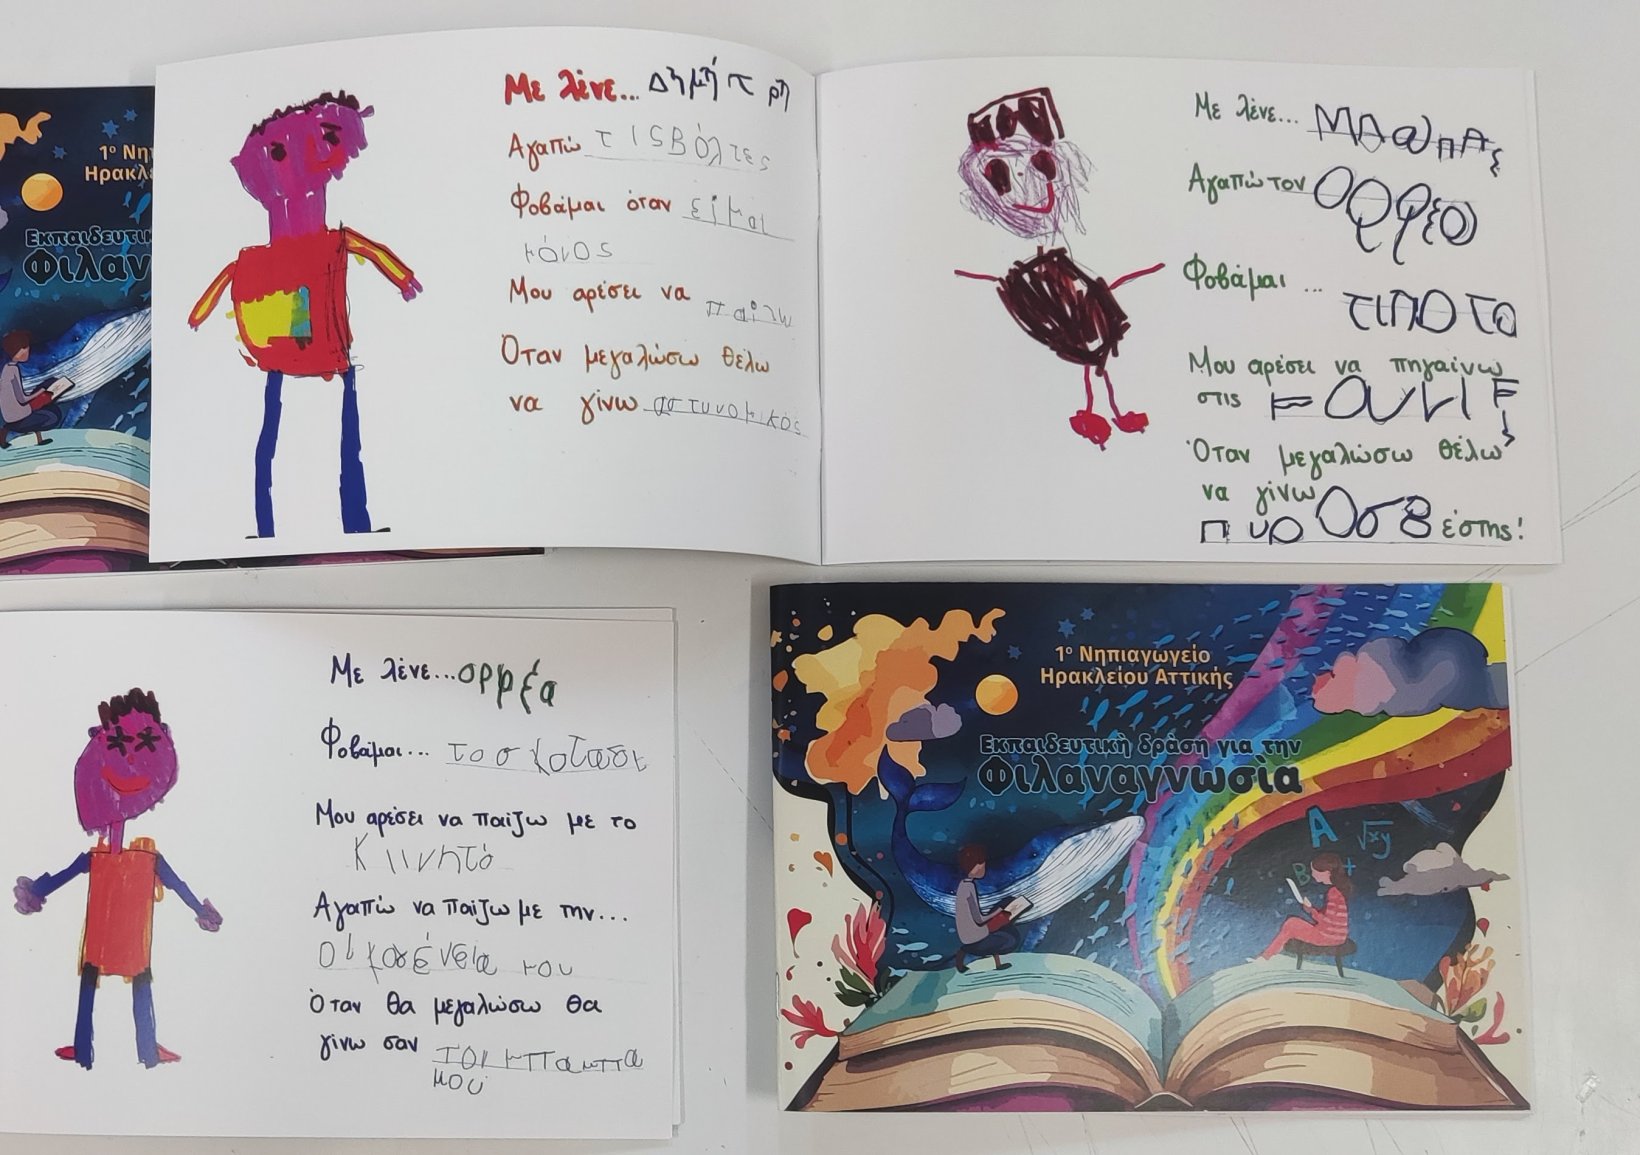 1ο Νηπ
Ηρακλε
Εκπαιδευτικ
Φιλαν
Με λένε... Δημήτρη
Αγαπώ τις βόλτες
Φοβάμαι όταν είμαι
μόνος
Μου αρέσει να παίζω
Όταν μεγαλώσω θέλω
να γίνω αστυνομικός
Με λένε...
Αγαπώ τον Ορφέα
Φοβάμαι ... τίποτα
Μου αρέσει να πηγαίνω
στις κούνιες
Όταν μεγαλώσω θέλω
να γίνω
πυροσβέστης!
Με λένε... Ορφέα
Φοβάμαι... το σκοτάδι
Μου αρέσει να παίζω με το
κιινητό
Αγαπώ να παίζω με την...
οικογένεια μου
Όταν θα μεγαλώσω θα
γίνω σαν τον μπαμπα
μου
1ο Νηπιαγωγείο
Ηρακλείου Αττικής
Εκπαιδευτική δράση για την
Φιλαναγνωσία
A
√xy
B +